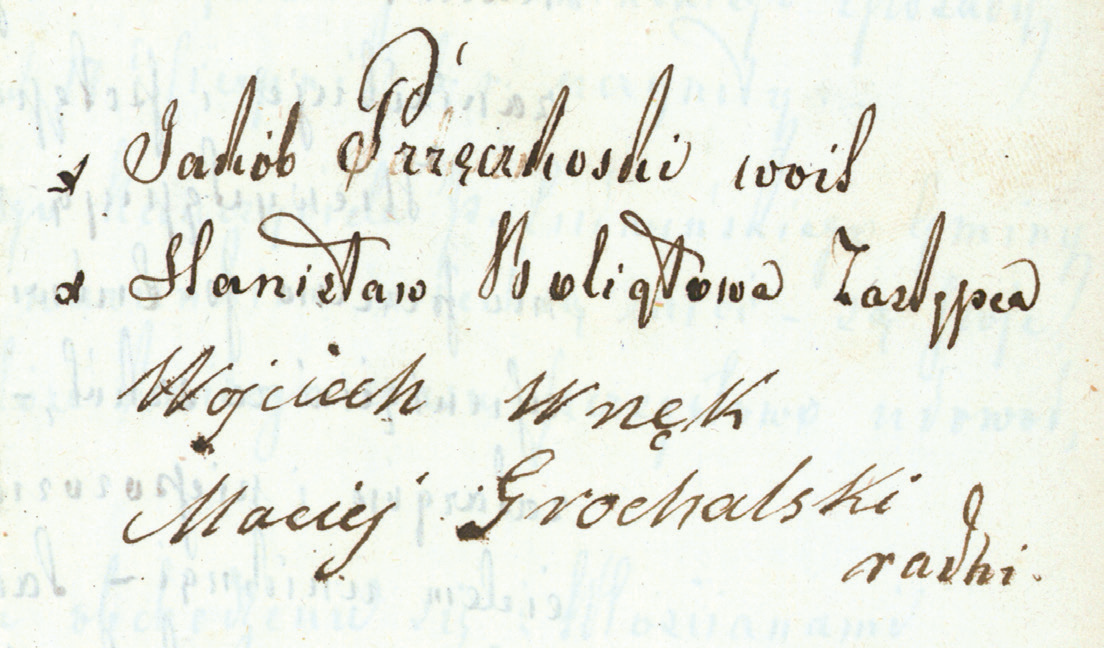 x Jakób Przęczkoski woit
x Stanisław Woliqtowa Zastępca
Wojciech Wnęk
Maciej Grochalski
radni.